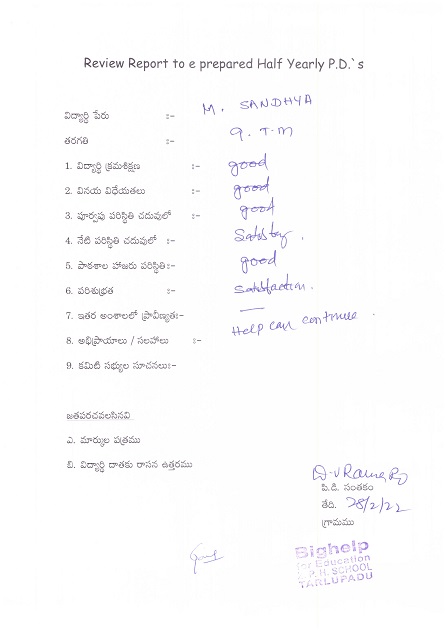 Review Report to e prepared Half Yearly P.D.`s
విద్యార్ధి పేరు :- M. SANDHYA
తరగతి :- 9. T.M
1. విద్యార్ధి క్రమశిక్షణ :- good
2. వినయ విధేయతలు :- good
3. పూర్వపు పరిస్థితి చదువులో :- good
4. నేటి పరిస్థితి చదువులో :-
5. పాఠశాల హాజరు పరిస్థితి:- good
6. పరిశుభ్రత :- Satisfaction.
7. ఇతర అంశాలలో ప్రావీణ్యత:- —
8. అభిప్రాయాలు / సలహాలు :- Help can continue.
9. కమిటి సభ్యుల సూచనలు:-
జతపరచవలసినవి
ఎ. మార్కుల పత్రము
బి. విద్యార్ధి దాతకు రాసిన ఉత్తరము
పి.డి. సంతకం
తేది. 28/2/22
గ్రామము
Bighelp
for Education
HIGH SCHOOL
TARLUPADU